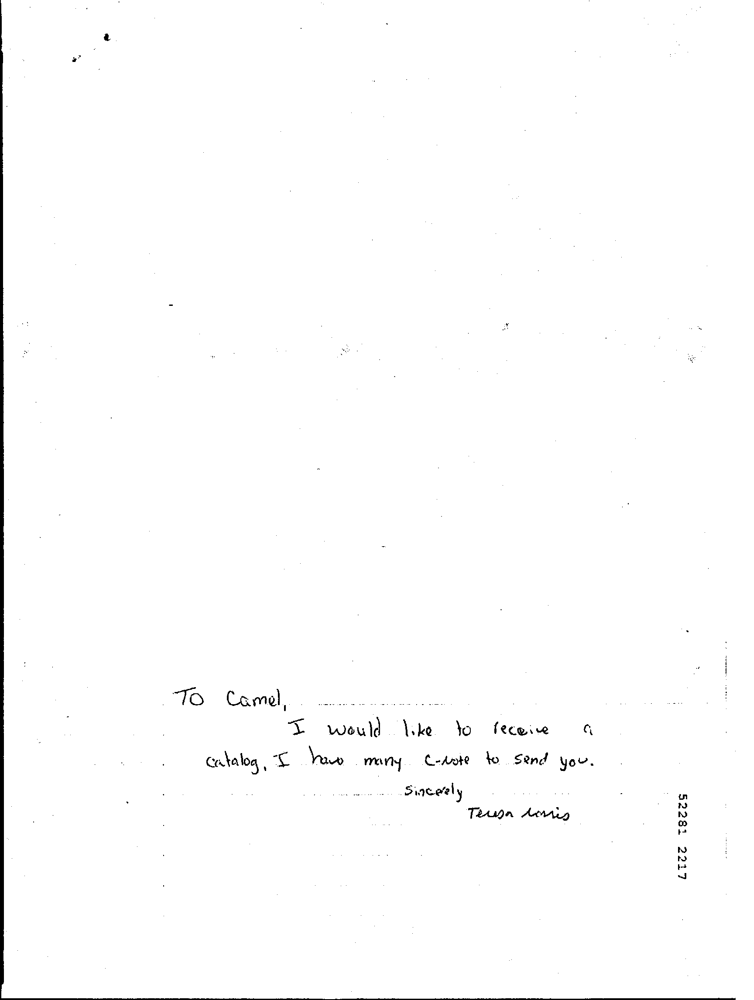 To Camel,
I would like to receive a
catalog, I have many C-Note to send you.
Sincerely
Teresa
52281 2217